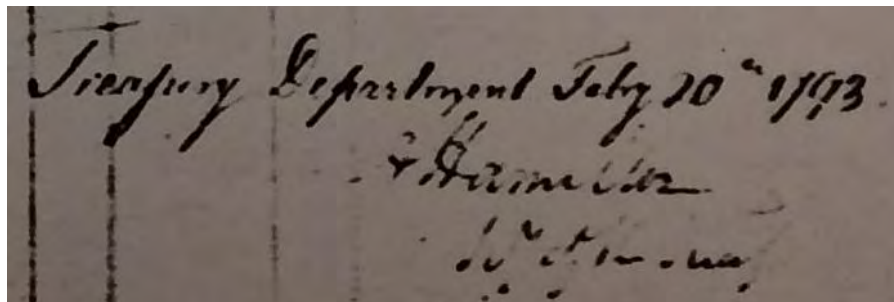 Treasury Department Feby 20th 1793
A Hamilton